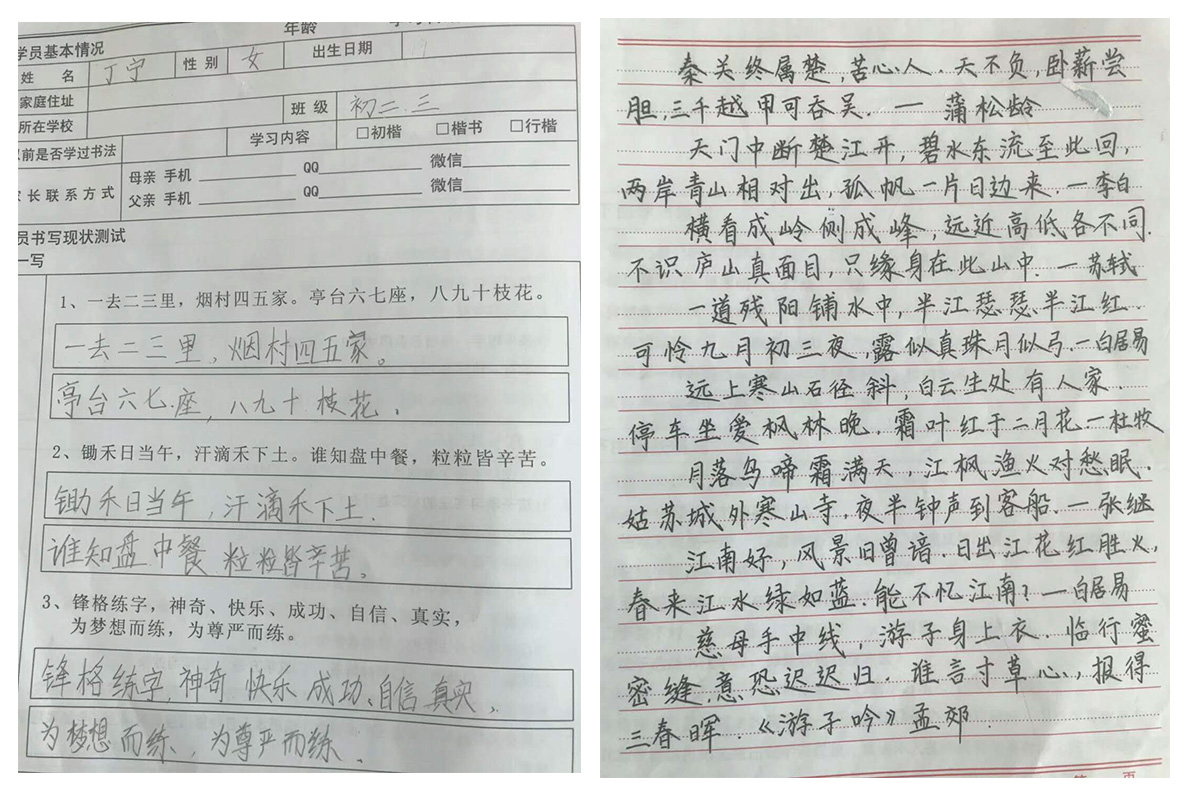 年龄
学员基本情况
姓 名 丁宁 性 别 女 出生日期
家庭住址
所在学校 班 级 初二.三
前是否学过书法 学习内容 □初楷 □楷书 □行楷
长联系方式 母亲 手机 QQ 微信
父亲 手机 QQ 微信
员书写现状测试
一写
1、一去二三里，烟村四五家。亭台六七座，八九十枝花。
一去二三里，烟村四五家。
亭台六七座，八九十枝花.
2、锄禾日当午，汗滴禾下土。谁知盘中餐，粒粒皆辛苦。
锄禾日当午，汗滴禾下土.
谁知盘中餐 粒粒皆辛苦。
3、锋格练字，神奇、快乐、成功、自信、真实，
为梦想而练，为尊严而练。
锋格练字,神奇 快乐 成功、自信、真实，
为梦想而练、为尊严而练.
秦关终属楚,苦心人.天不负,卧薪尝
胆,三千越甲可吞吴. — 蒲松龄
天门中断楚江开,碧水东流至此回,
两岸青山相对出,孤帆一片日边来.—李白
横看成岭侧成峰,远近高低各不同.
不识庐山真面目,只缘身在此山中.—苏轼
一道残阳铺水中,半江瑟瑟半江红.
可怜九月初三夜,露似真珠月似弓.—白居易
远上寒山石径斜,白云生处有人家.
停车坐爱枫林晚.霜叶红于二月花—杜牧
月落乌啼霜满天,江枫渔火对愁眠.
姑苏城外寒山寺.夜半钟声到客船.—张继
江南好,风景旧曾谙.日出江花红胜火,
春来江水绿如蓝.能不忆江南?—白居易
慈母手中线,游子身上衣.临行蜜
密缝,意恐迟迟归.谁言寸草心,报得
三春晖.《游子吟》孟郊.